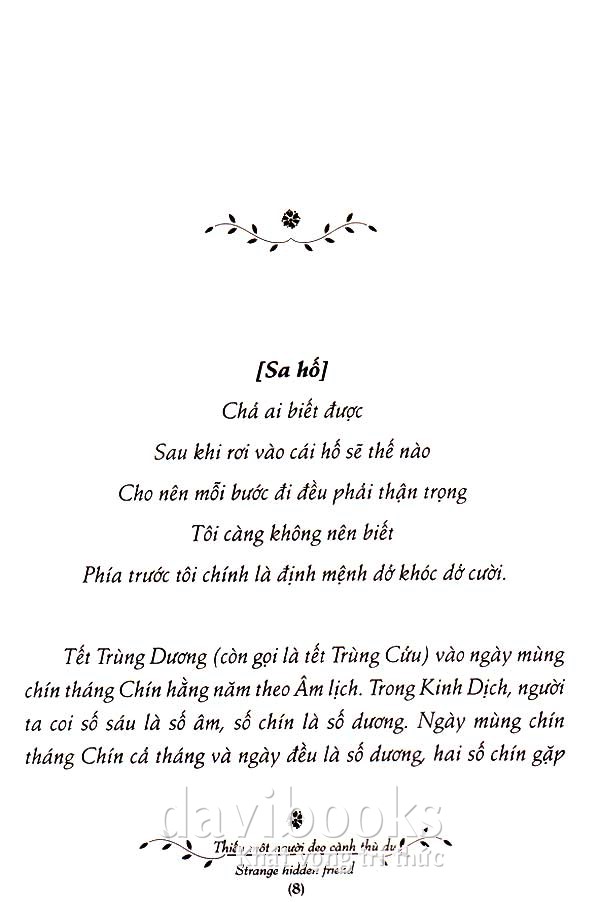 [Sa hố]
Chả ai biết được
Sau khi rơi vào cái hố sẽ thế nào
Cho nên mỗi bước đi đều phải thận trọng
Tôi càng không nên biết
Phía trước tôi chính là định mệnh dở khóc dở cười.
Tết Trùng Dương (còn gọi là tết Trùng Cửu) vào ngày mùng
chín tháng Chín hằng năm theo Âm lịch. Trong Kinh Dịch, người
ta coi số sáu là số âm, số chín là số dương. Ngày mùng chín
tháng Chín cả tháng và ngày đều là số dương, hai số chín gặp
davibooks
Thiếu một người đeo cành thù du
Khát vọng tri thức
Strange hidden friend
(8)